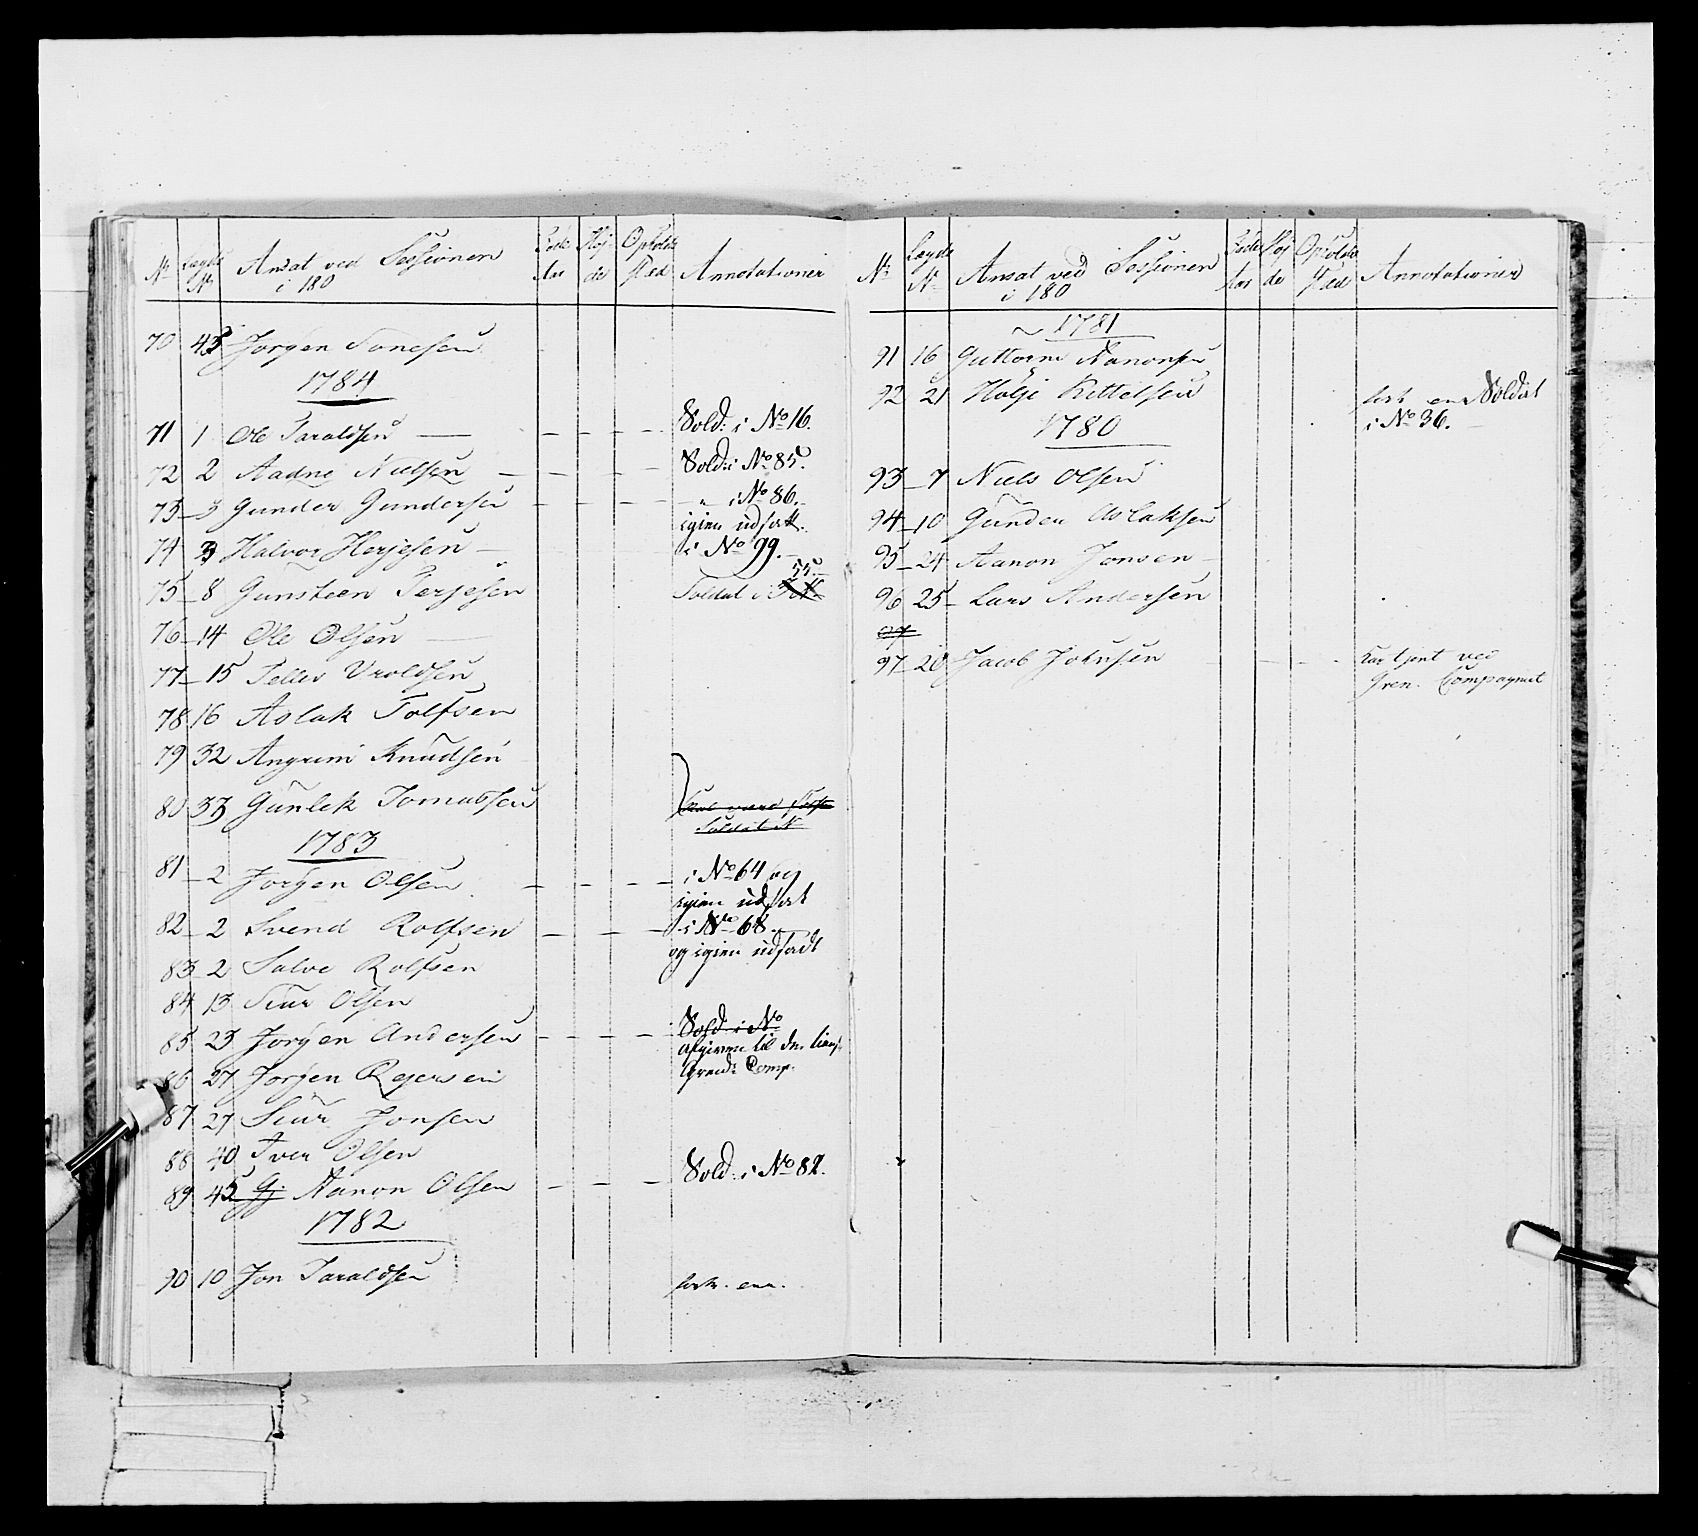 No Lægds No Ansat ved Sessionen i 180 Føde Aar Høj de Opholds Sted Annotationer
70 43 Jørgen Tonesen
1784
71 1 Ole Taraldsen Sold: i No 16.
72 2 Aadne Nielsen Sold: i No 85.
73 3 Gunder Gundersen " i No 86.
igien udsatt.
74 3 Halvor Herjesen i No 99.
75 8 Gunsteen Terjesen Soldat i 55.
76 14 Ole Olsen
77 15 Tellev Vroldsen
78 16 Aslak Tolfsen
79 32 Angrim Knudsen
80 33 Gunlek Tomassen
Soldat N
1783
81 2 Jørgen Olsen i No 64 og
igien udsat
82 2 Svend Rolfsen i No 68.
og igien udsadt
83 2 Salve Rolfsen
84 13 Siur Olsen
85 23 Jørgen Andersen Sold: i No
Afgiven til den
Grend: Comp.
86 27 Jørgen Rejersen
87 27 Siur Jonsen
88 40 Iver Olsen
89 45 Aanon Olsen Sold: i No 82.
1782
90 10 Jon Taraldsen
No Lægds No Ansat ved Sessionen i 180 Føde Aar Høj de Opholds Sted Annotationer
1781
91 16 Guttorm Aanonsen
92 21 Holje Kittelsen Soldat
i No 36.
1780
93 7 Niels Olsen
94 10 Gunder Aslaksen
95 24 Aanon Jonsen
96 25 Lars Andersen
97
97 28 Jacob Johnsen har tjent ved
Gren. Compagniet